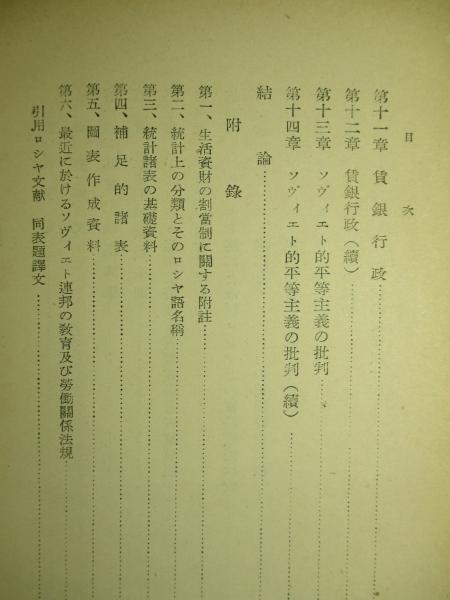 目次
第十一章 賃銀行政
第十二章 賃銀行政(續)
第十三章 ソヴィエト的平等主義の批判
第十四章 ソヴィエト的平等主義の批判(續)
結論
附錄
第一、生活資財の割當制に關する附註
第二、統計上の分類とそのロシヤ語名稱
第三、統計諸表の基礎資料
第四、補足的諸表
第五、圖表作成資料
第六、最近に於けるソヴィエト連邦の敎育及び勞働關係法規
引用ロシヤ文献 同表題譯文